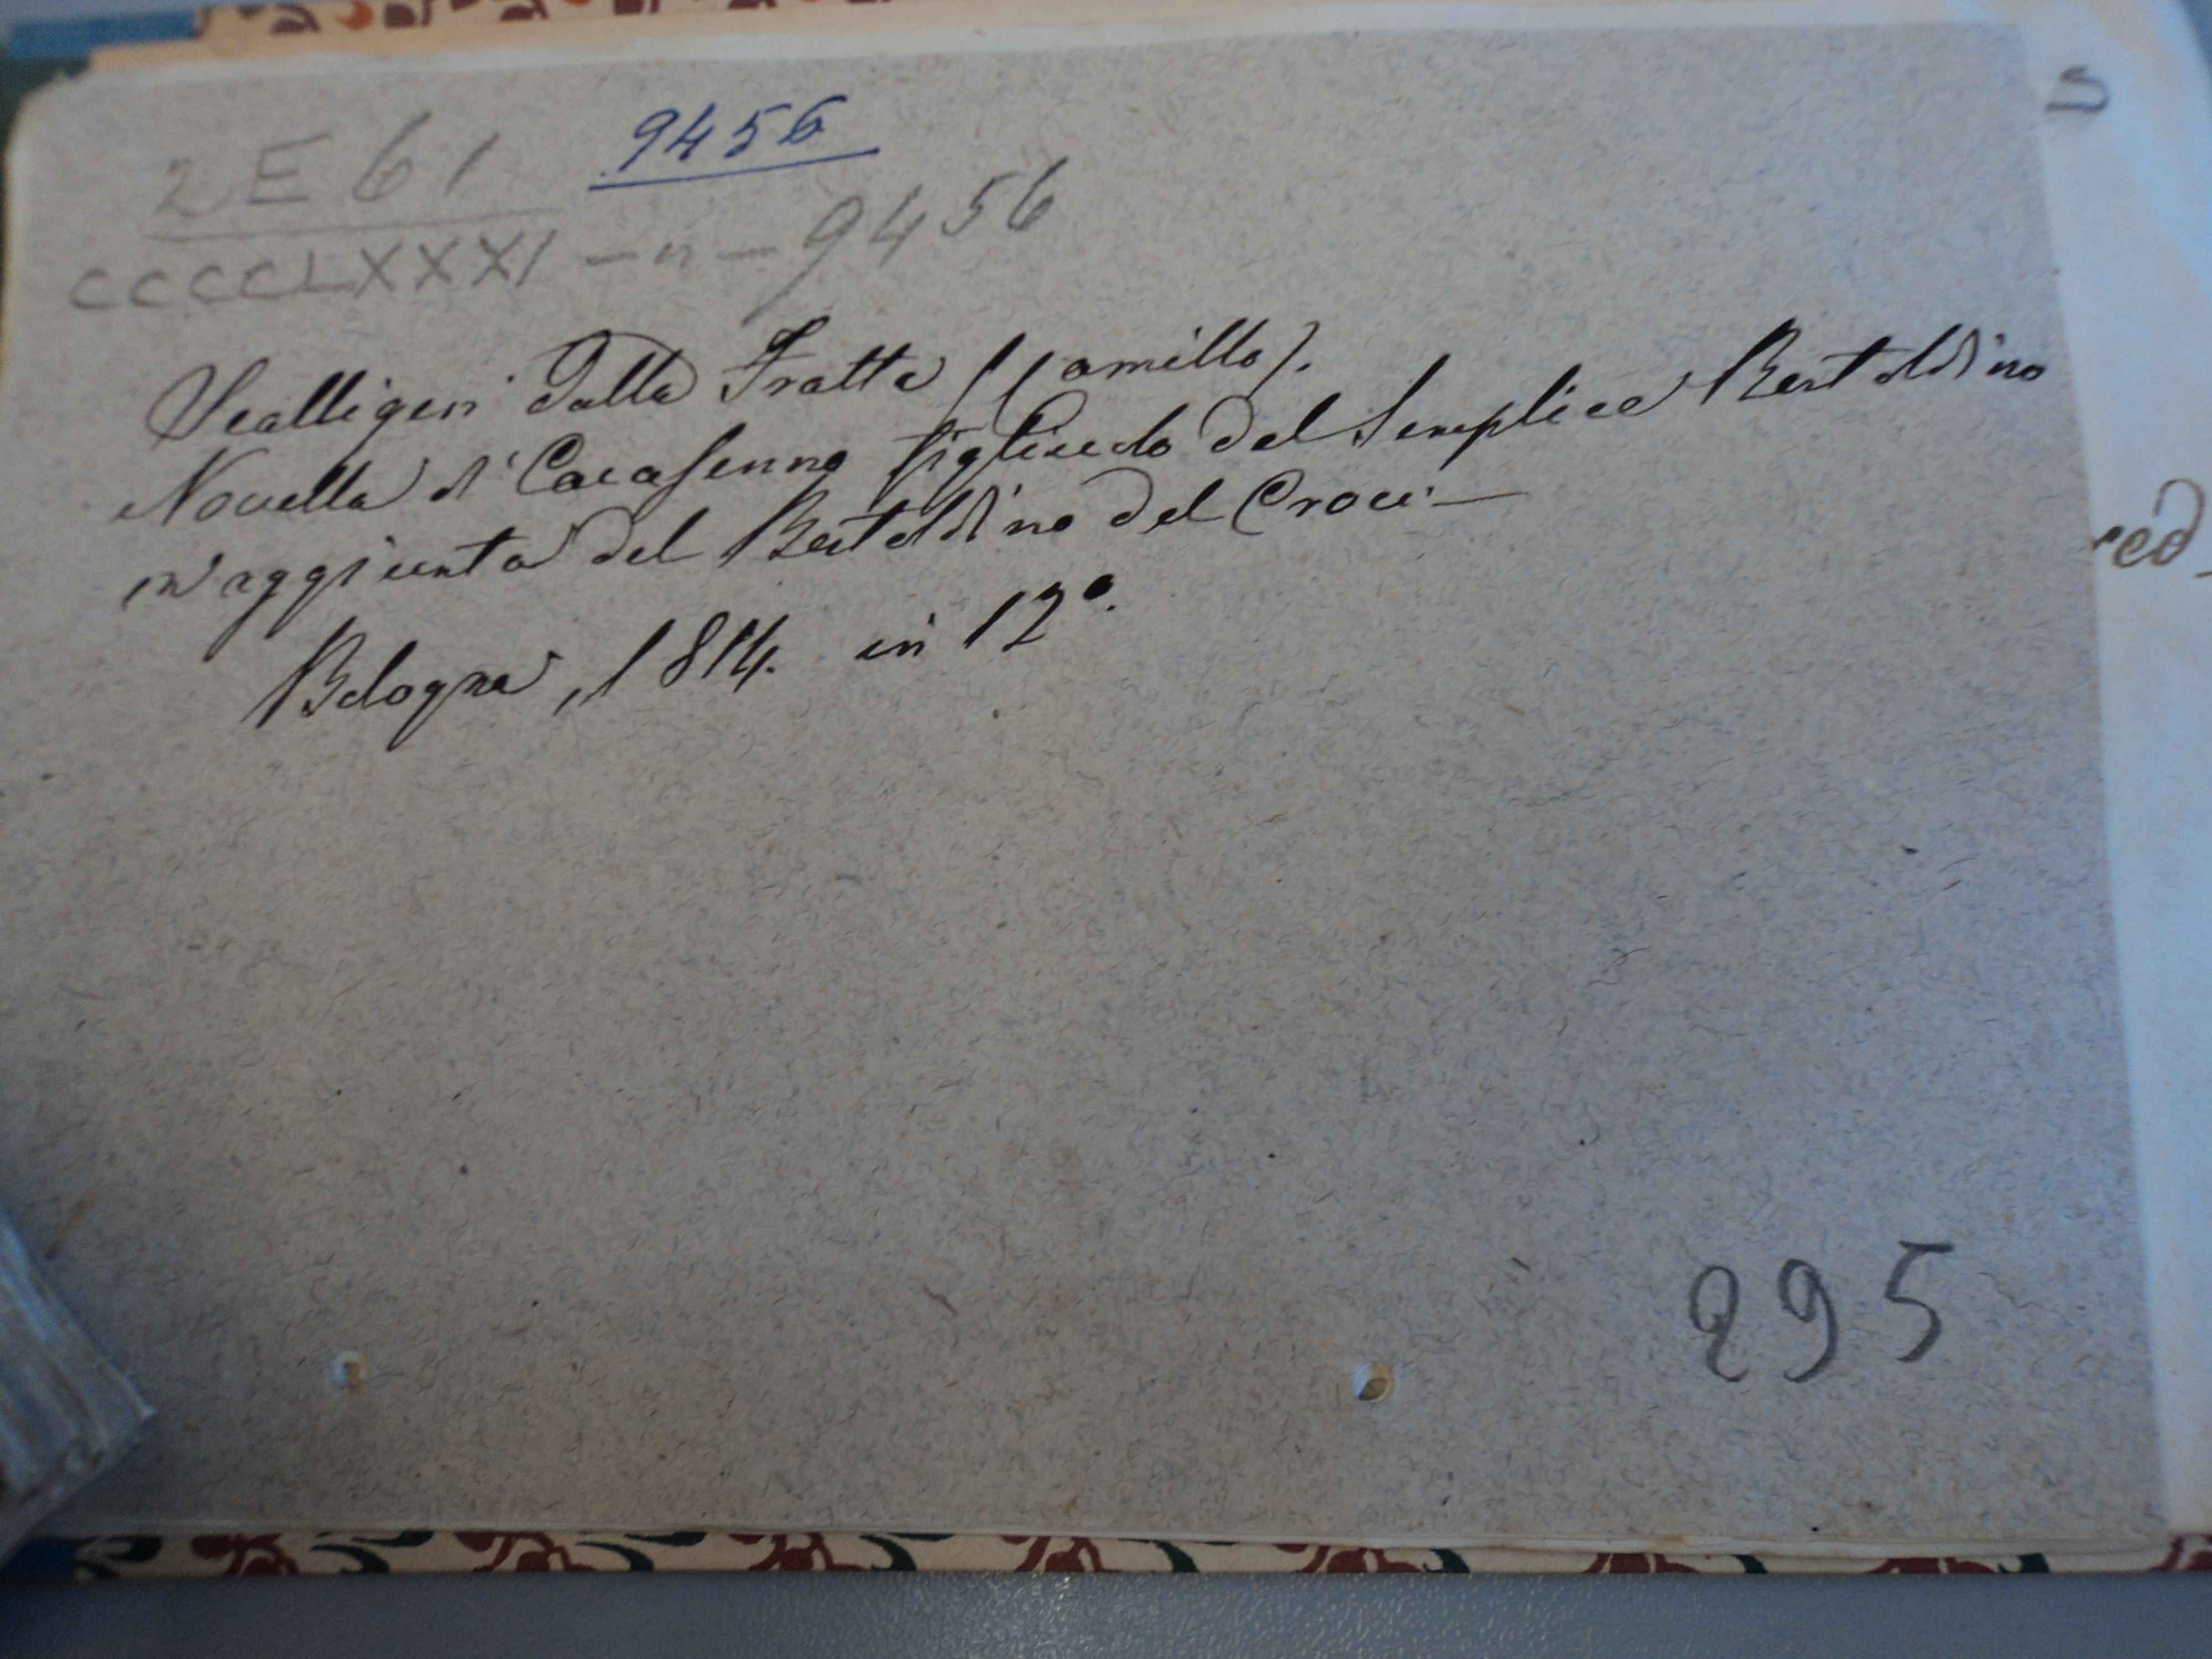 S
2 E 61
9456
CCCCLXXXI - n - 9456
Scalligeri dalla Fratta (Camillo).
Novella di Cacasenno figliuolo del Semplice Bertoldino
in aggiunta del Bertoldino del Croci -
Bologna, 1814. in 12°.
red
295